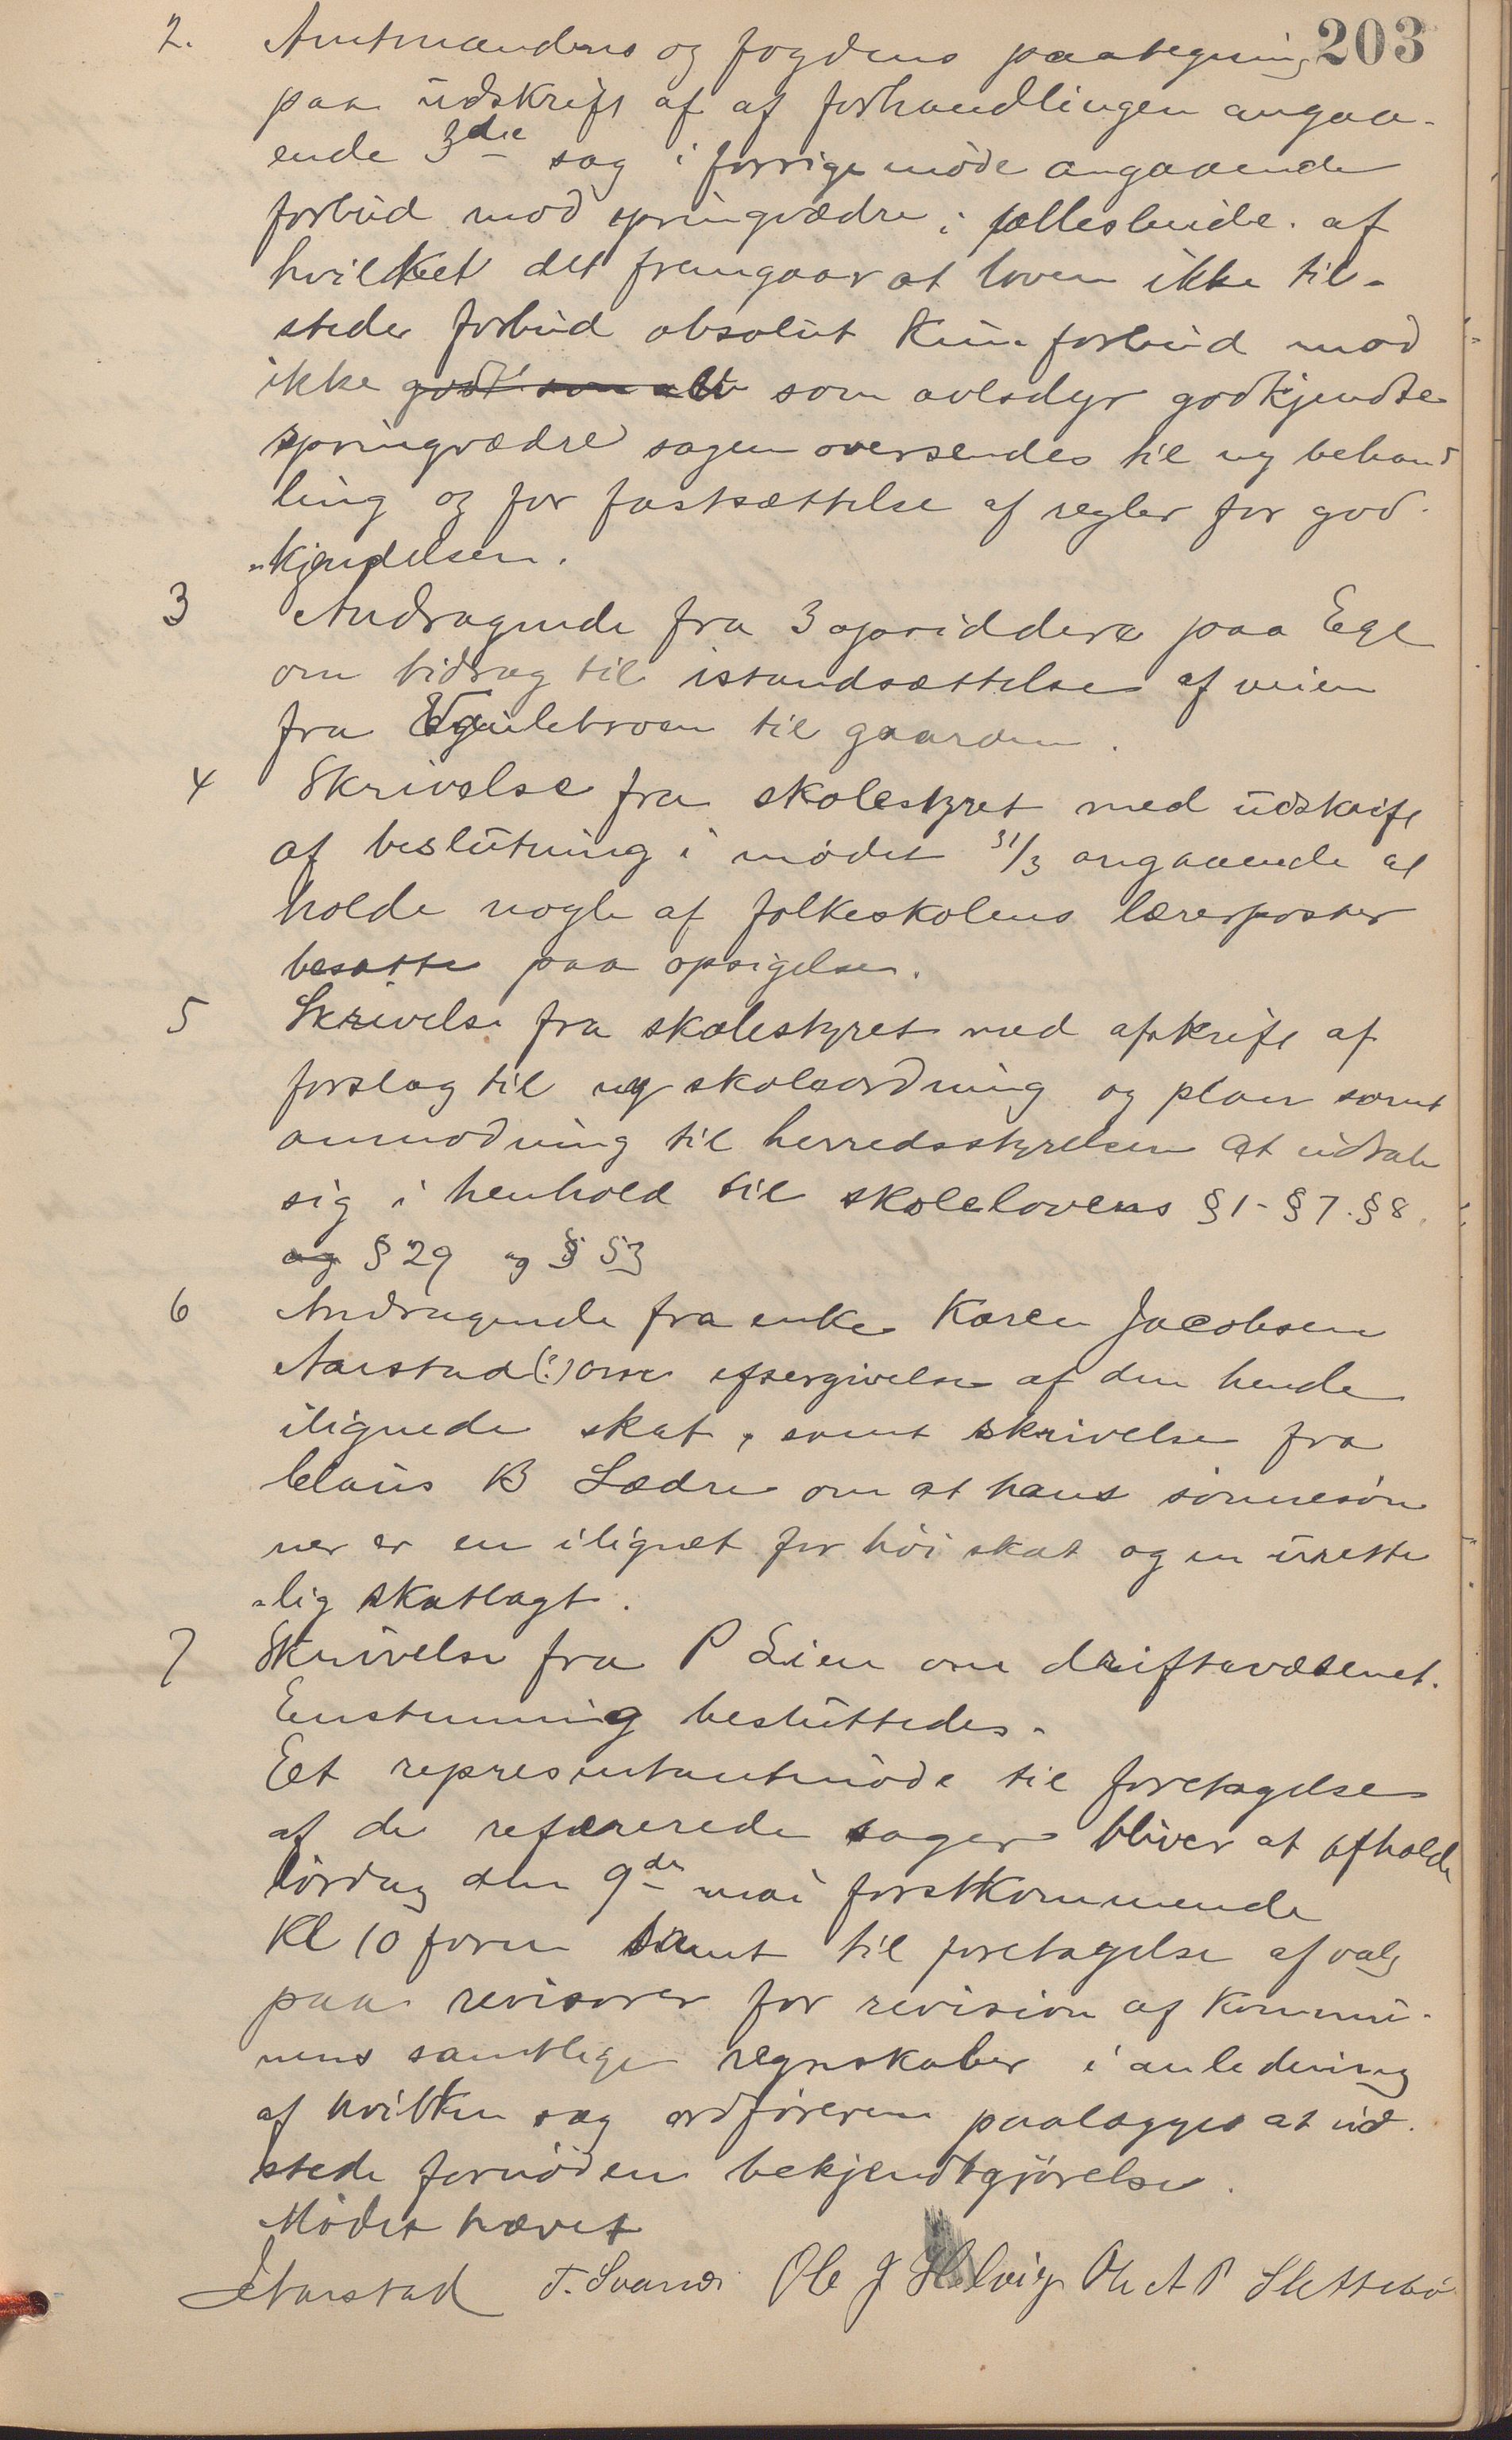 203
2. Amtmandens og fogdens paategning
paa udskrift af af forhandlingen angaa-
ende 3die sag i forrige møde angaaende
forbud mod springvædre i fællesbeide. af
hvilket det fremgaar at loven ikke til-
steder forbud absolut kun forbud mod
ikke som avlsdyr godkjendte
springvædre sagen oversendes til ny behand
ling og for fastsættelse af regler for god-
"kjendelsen.
3 Andragende fra 3 opsiddere paa Ege
om bidrag til istandsættelse af veien
fra til gaarden.
4 Skrivelse fra skolestyret med udskrift
af beslutning i mødet 31/3 angaaende at
holde nogle af folkeskolens lærerposter
besatte paa opsigelse.
5 Skrivelse fra skolestyret med afskrift af
forslag til ny skoleordning og plan samt
anmodning til herredsstyrelsen at udtale
sig i henhold til skolelovens § 1 - § 7. § 8
og § 29 og § 53
6 Andragende fra enke Karen Jacobsen
Aarstad (?) om eftergivelse af den hende
ilignede skat, samt skrivelse fra
Claus B Lædre om at hans sønnesøn
ner er en ilignet for høi skat og en urette
"lig skatlagt.
7 Skrivelse fra P Lien om driftevæsenet.
Enstemmig besluttedes.
Eet representantmøde til foretagelse
af de refererede sager bliver at afholde
lørdag den 9de mai førstkommende
Kl 10 form samt til foretagelse af valg
paa revisorer for revision af kommu-
nens samtlige regnskaber i anledning
af hvilken sag ordføreren paalægges at ud-
stede fornøden bekjendtgjørelse.
Mødet hævet
Aarstad T. Svanes Ole J Helvig Ole A P Slettebø